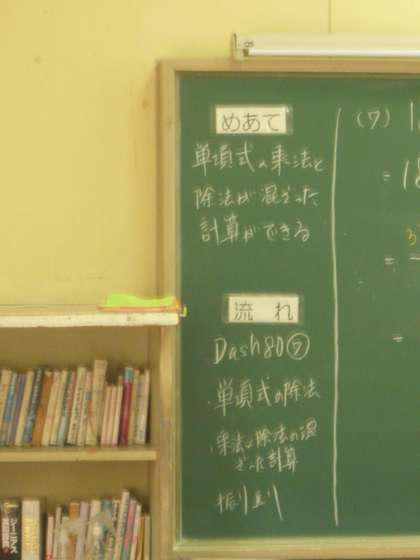 めあて
単項式の乗法と
除法が混ざった
計算ができる
流れ
Dash80⑦
・単項式の除法
・乗法と除法の混
ざった計算
振り返り
(7)
= 18
3
=
=
ジーニアス